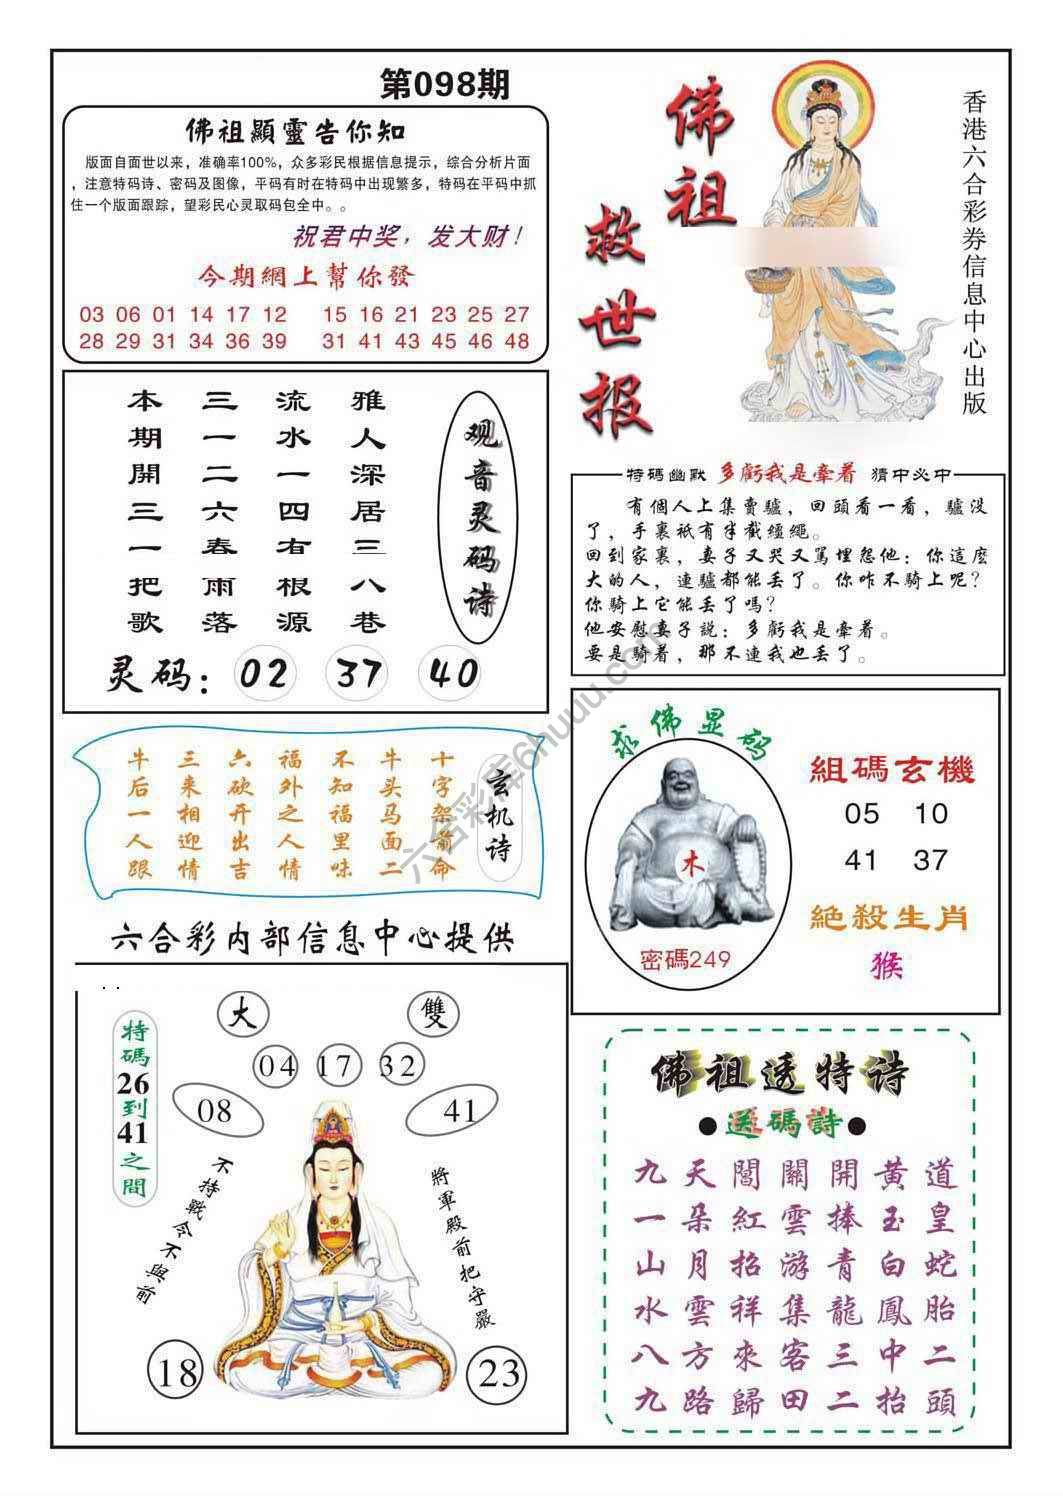 第098期
佛祖顯靈告你知
版面自面世以来，准确率100%，众多彩民根据信息提示，综合分析片面
，注意特码诗、密码及图像，平码有时在特码中出现繁多，特码在平码中抓
住一个版面跟踪，望彩民心灵取码包全中。。
祝君中奖，发大财！
今期網上幫你發
03 06 01 14 17 12 15 16 21 23 25 27
28 29 31 34 36 39 31 41 43 45 46 48
佛祖
救世报
香港六合彩券信息中心出版
观音灵码诗
雅人深居三八巷
流水一四有根源
三一二六春雨落
本期開三一把歌
灵码：02 37 40
特碼幽默 多虧我是牽着 猜中必中
有個人上集賣驢，回頭看一看，驢没
了，手裏祇有半截繮繩。
回到家裏，妻子又哭又罵埋怨他：你這麽
大的人，連驢都能丢了。你咋不騎上呢？
你騎上它能丢了嗎？
他安慰妻子說：多虧我是牽着。
要是騎着，那不連我也丢了。
玄机诗
十字架前命
牛头马面二
不知福里味
福外之人情
六砍开出吉
三来相迎情
牛后一人跟
求佛显码
木
密碼249
組碼玄機
05 10
41 37
絕殺生肖
猴
六合彩内部信息中心提供
大 雙
04 17 32
08 41
特碼26到41之間
不持戰令不與前
將軍殿前把守嚴
18 23
佛祖透特诗
●送碼詩●
九天閶關開黃道
一朵紅雲捧玉皇
山月招游青白蛇
水雲祥集龍鳳胎
八方來客三中二
九路歸田二抬頭
六合彩库6huuu.com